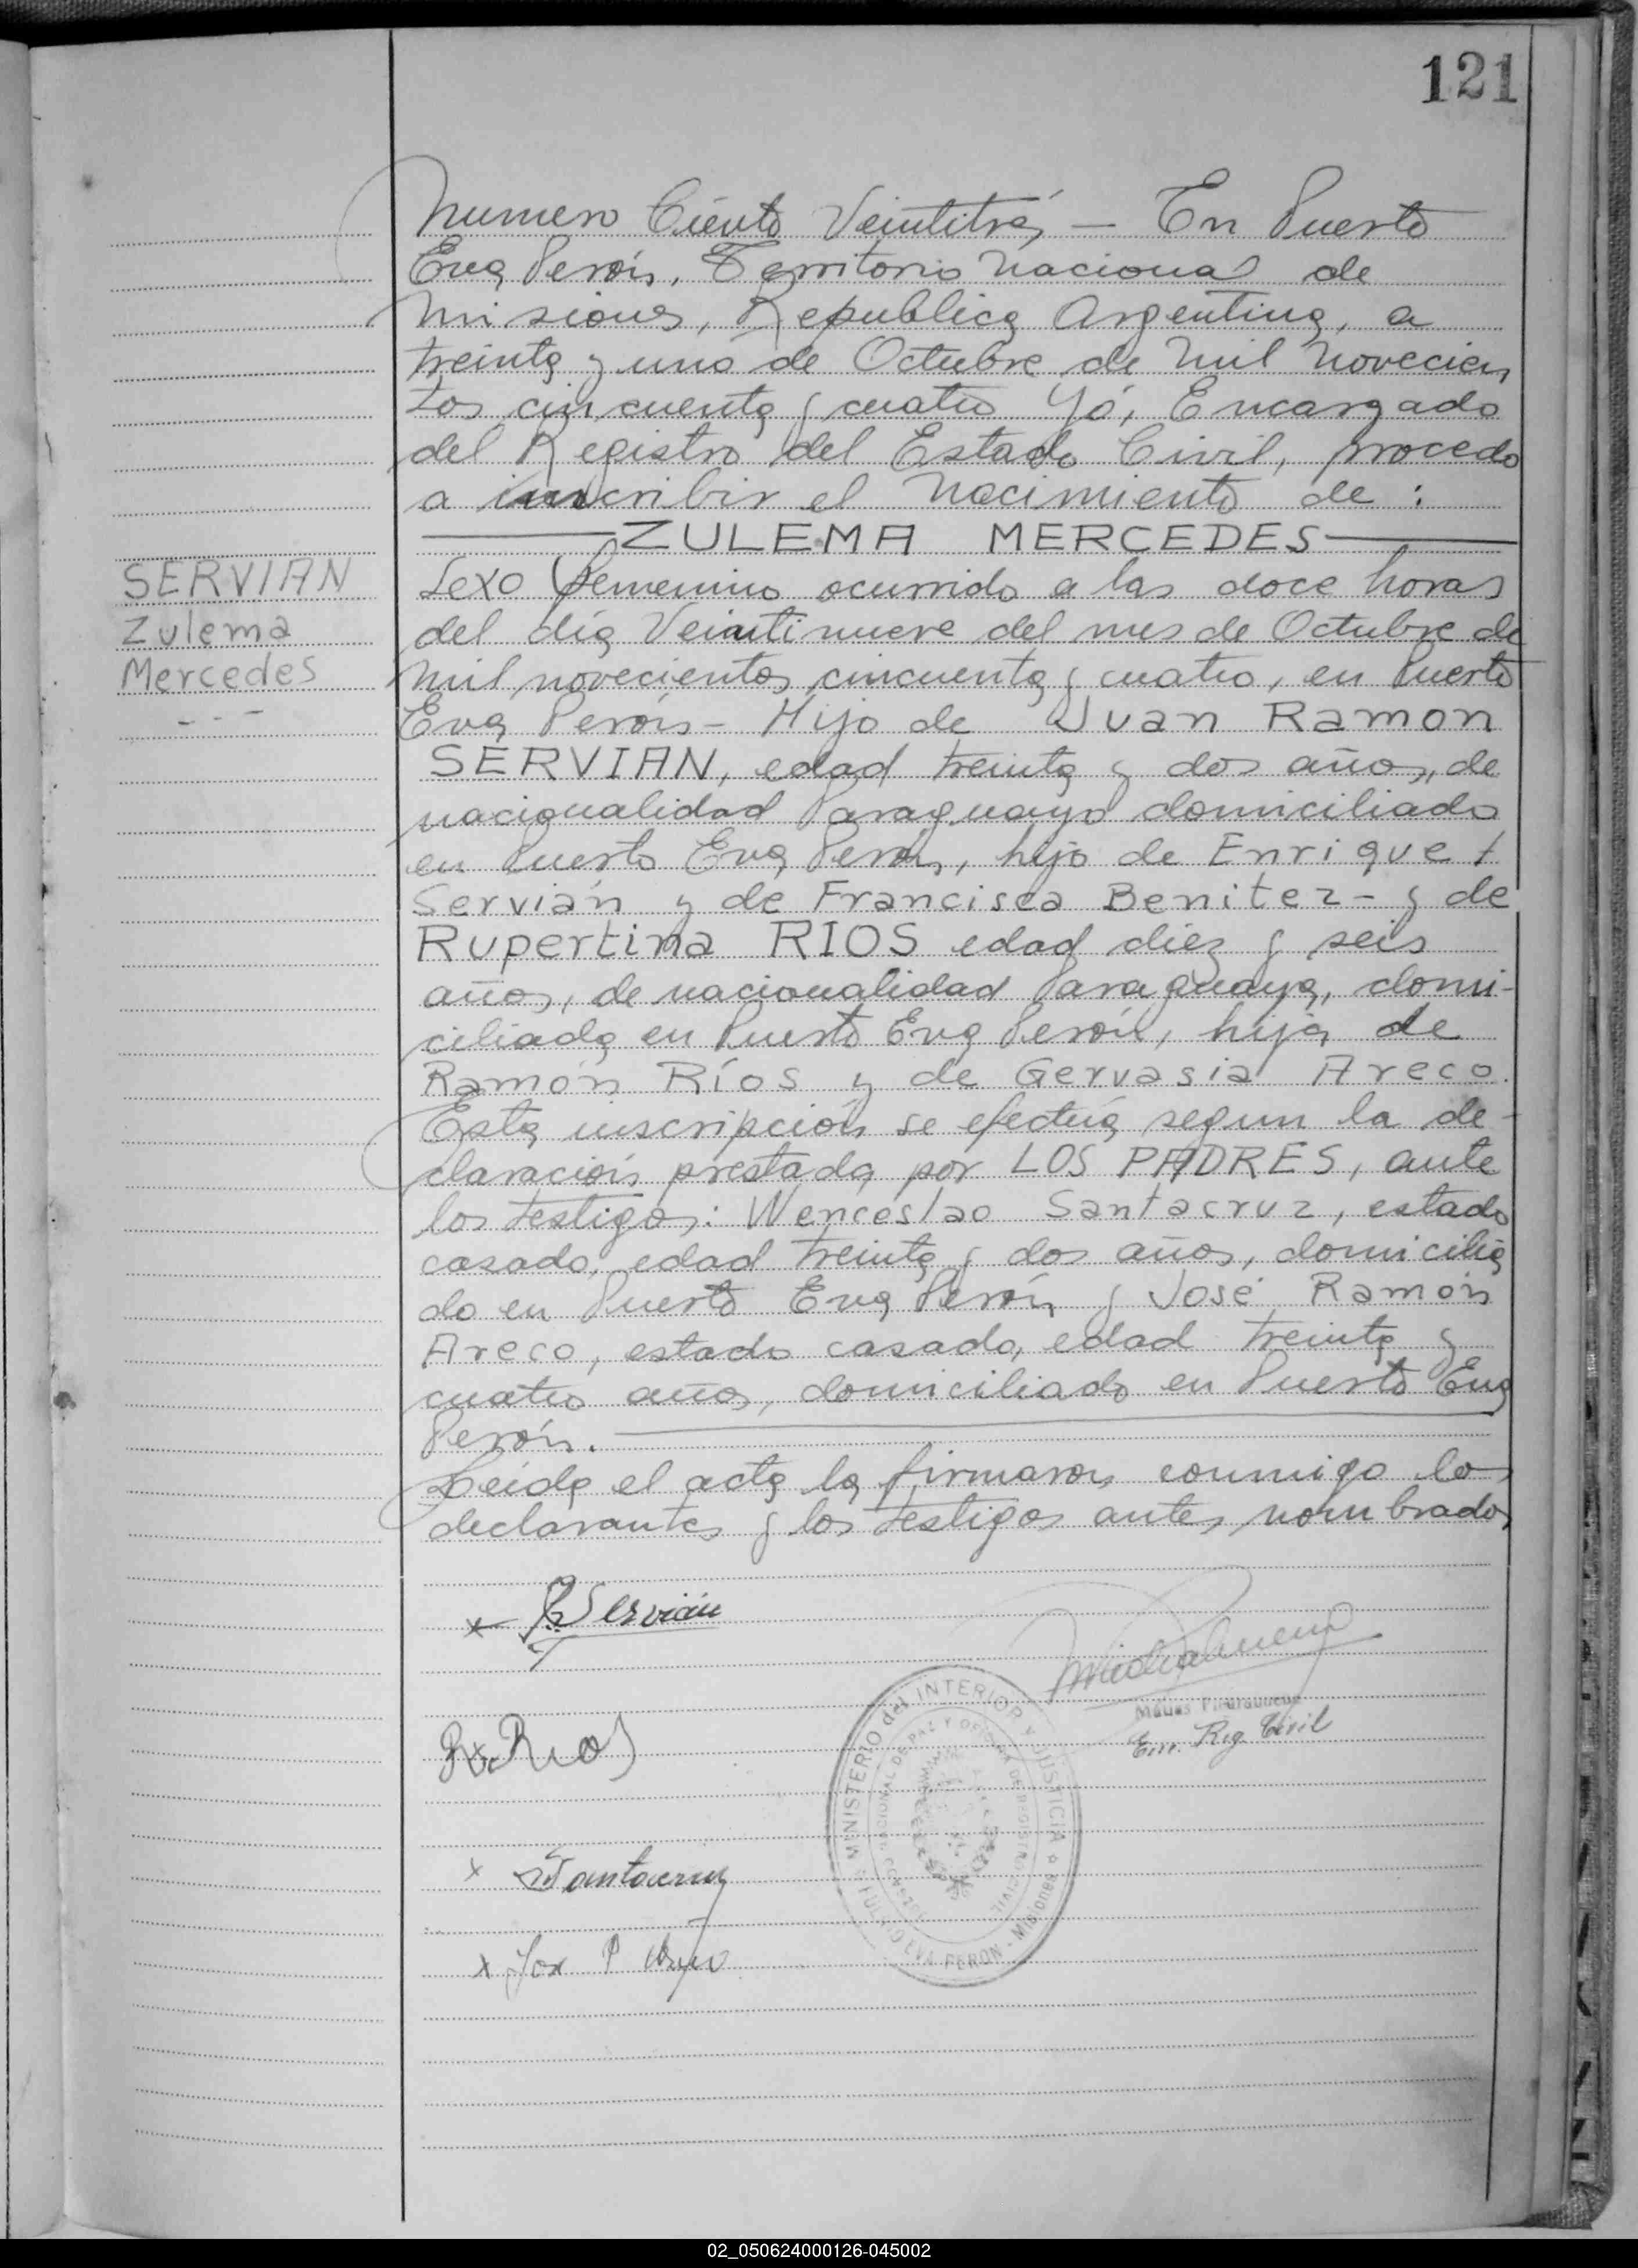 121
Numero Ciento Veintitrés — En Puerto
Eva Perón, Territorio Nacional de
Misiones, Republica Argentina, a
treinta y uno de Octubre de Mil Novecien
tos cincuenta y cuatro Yó, Encargado
del Registro del Estado Civil, procedo
a inscribir el Nacimiento de :
ZULEMA MERCEDES
SERVIAN
Zulema
Mercedes
- - -
Sexo Femenino ocurrido a las doce horas
del día Veintinueve del mes de Octubre de
Mil novecientos cincuenta y cuatro, en Puerto
Eva Perón - Hijo de Juan Ramon
SERVIAN, edad treinta y dos años, de
nacionalidad Paraguayo domiciliado
en Puerto Eva Perón, hijo de Enrique
Servián y de Francisca Benitez - y de
Rupertina RIOS edad diez y seis
años, de nacionalidad Paraguaya, domi-
ciliada en Puerto Eva Perón, hija de
Ramón Ríos y de Gervasia Areco.
Esta inscripción se efectúa segun la de-
claración prestada por LOS PADRES, ante
los testigos: Wenceslao Santacruz, estado
casado, edad treinta y dos años, domicilia
do en Puerto Eva Perón y José Ramón
Areco, estado casado, edad treinta y
cuatro años, domiciliado en Puerto Eva
Perón.
Leida el acta la firmaron conmigo los
declarantes y los testigos antes nombrados
x Servián
Enc. Reg. Civil
R. Rios
MINISTERIO del INTERIOR y JUSTICIA
EVA PERON - Misiones
x Santacruz
x
02_050624000126-045002